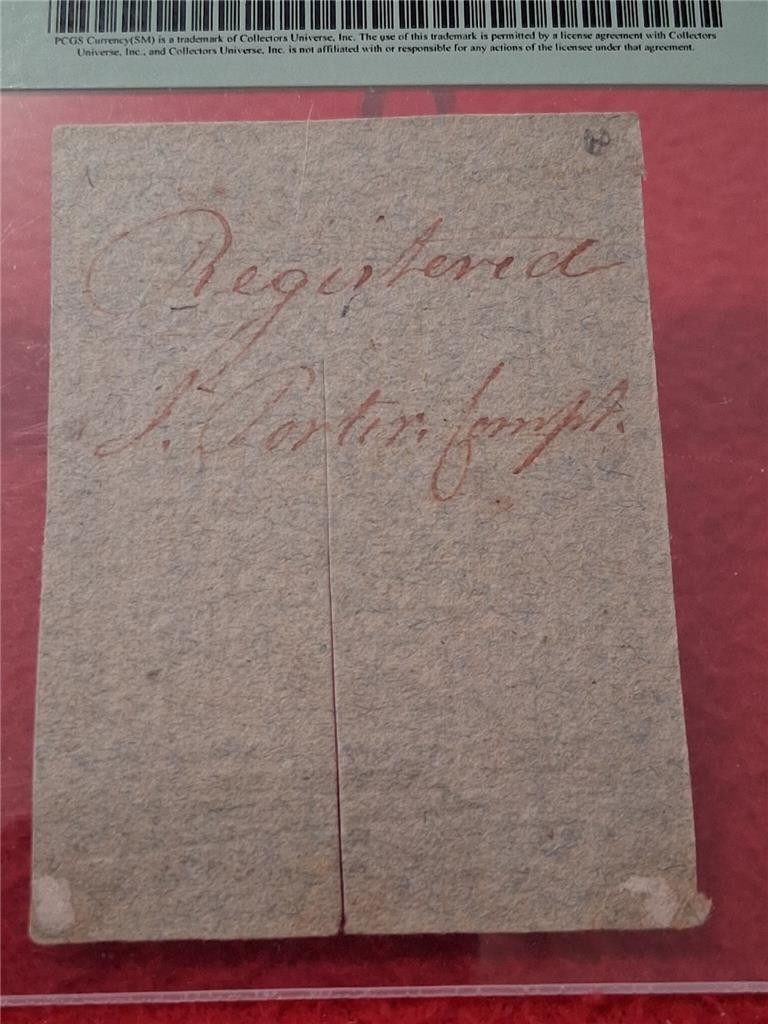 PCGS Currency(SM) is a trademark of Collectors Universe, Inc. The use of this trademark is permitted by a license agreement with Collectors
Universe, Inc., and Collectors Universe, Inc. is not affiliated with or responsible for any actions of the licensee under that agreement.
Registered
J. Porter. Compt.